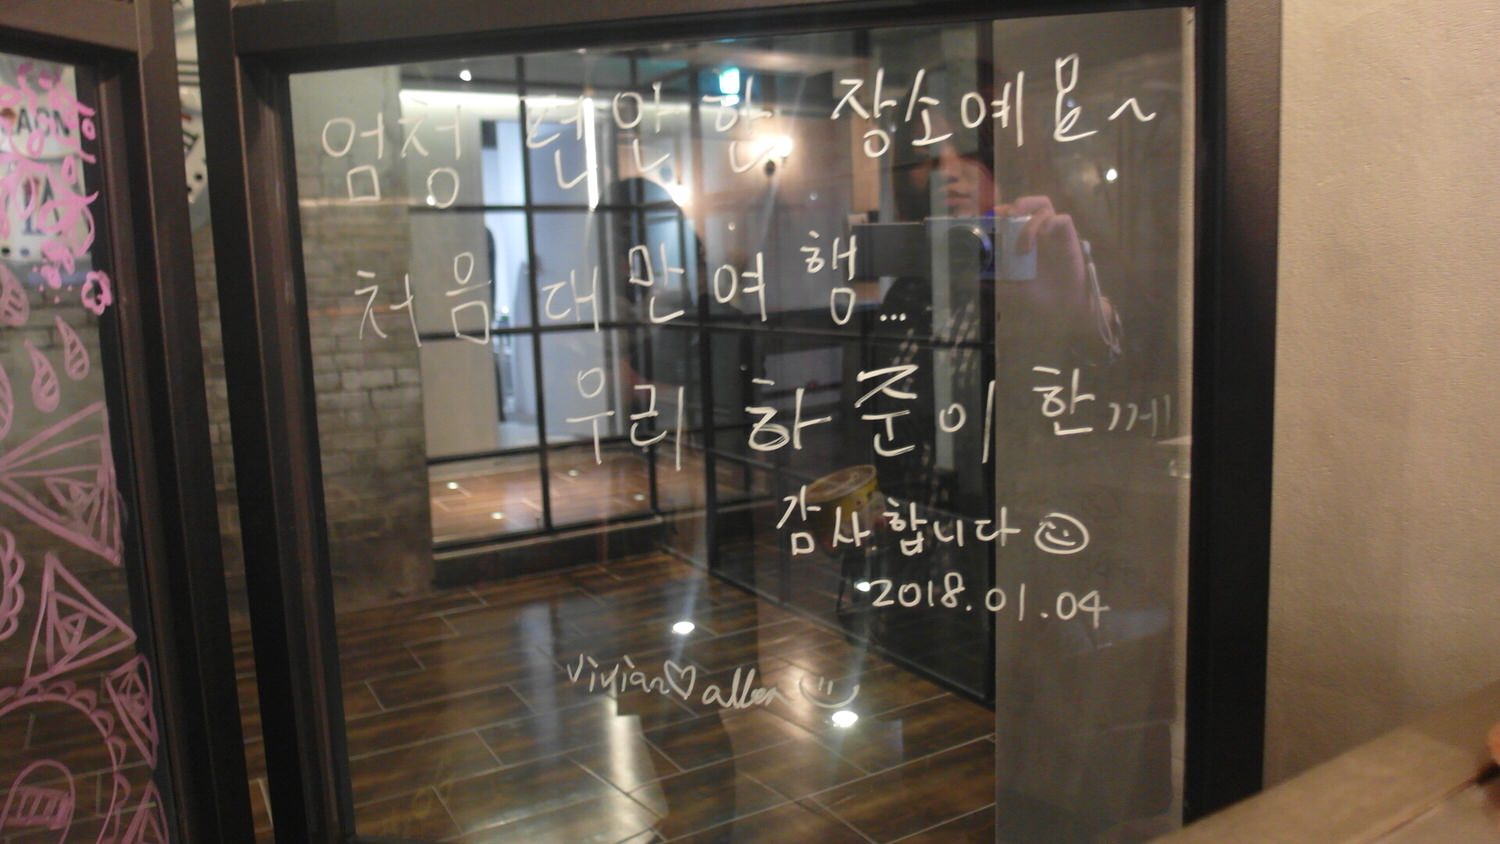 엄청 편안한 장소예요~
처음 대만여행...
우리 하준이 한께
감사합니다
2018.01.04
vivian♡allen